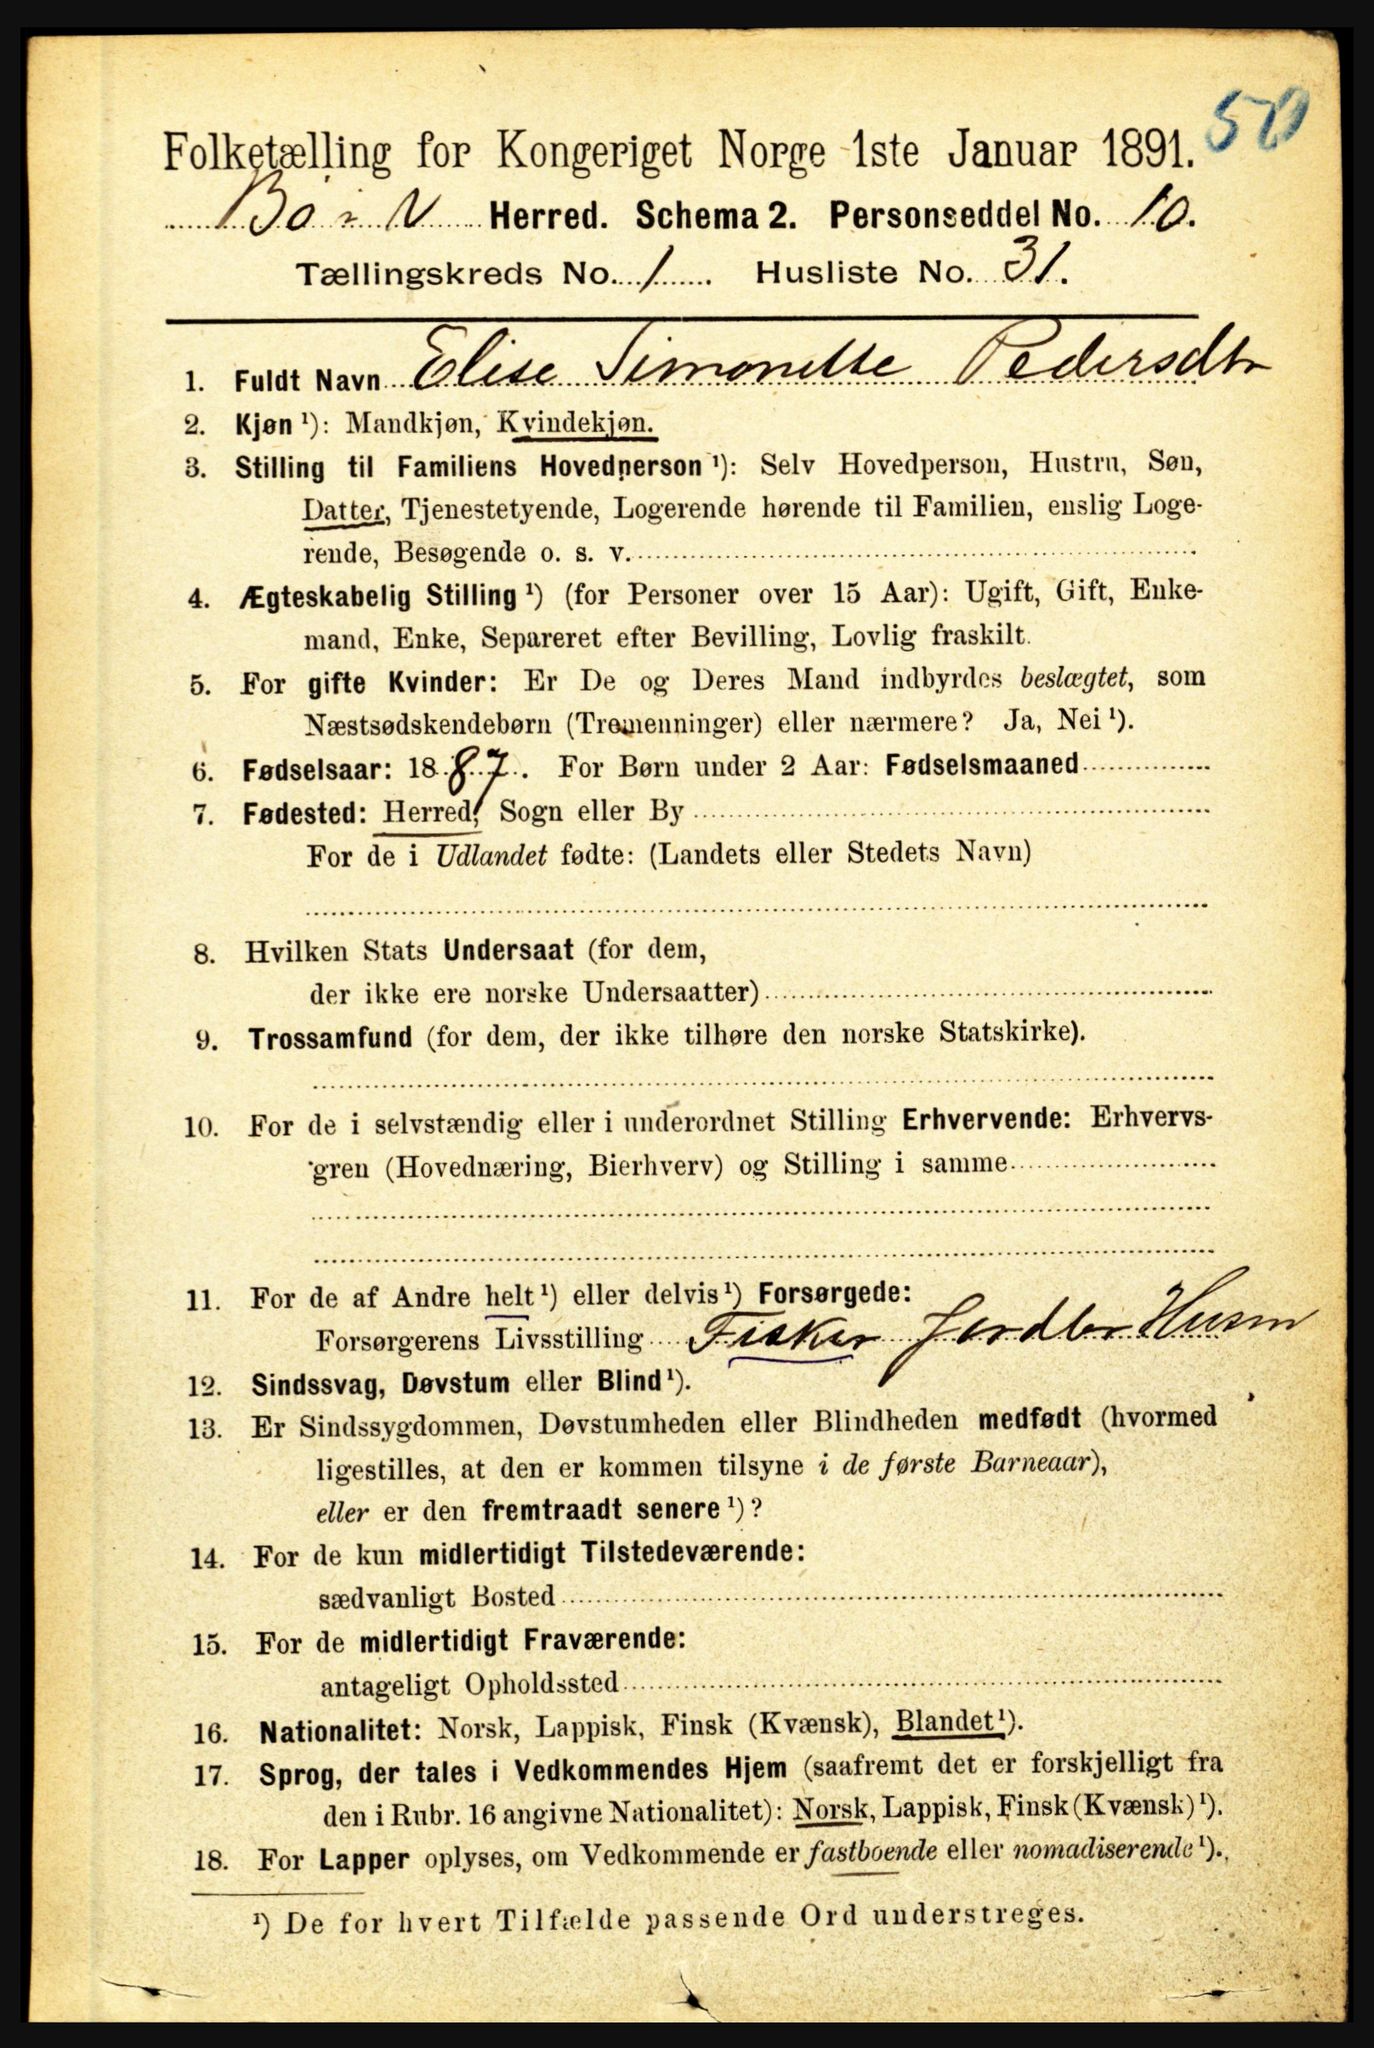 50
Folketælling for Kongeriget Norge 1ste Januar 1891.
Bö i V Herred. Schema 2. Personseddel No. 10.
Tællingskreds No. 1 . Husliste No. 31.
1. Fuldt Navn Elise Simonette Pedersdtr
2. Kjøn ¹): Mandkjøn, Kvindekjøn.
3. Stilling til Familiens Hovedperson ¹): Selv Hovedperson, Hustru, Søn,
Datter, Tjenestetyende, Logerende hørende til Familien, enslig Loge-
rende, Besøgende o. s. v.
4. Ægteskabelig Stilling ¹) (for Personer over 15 Aar): Ugift, Gift, Enke-
mand, Enke, Separeret efter Bevilling, Lovlig fraskilt.
5. For gifte Kvinder: Er De og Deres Mand indbyrdes beslægtet, som
Næstsødskendebørn (Tremenninger) eller nærmere? Ja, Nei ¹).
6. Fødselsaar: 1887. For Børn under 2 Aar: Fødselsmaaned
7. Fødested: Herred, Sogn eller By
For de i Udlandet fødte: (Landets eller Stedets Navn)
8. Hvilken Stats Undersaat (for dem,
der ikke ere norske Undersaatter)
9. Trossamfund (for dem, der ikke tilhøre den norske Statskirke).
10. For de i selvstændig eller i underordnet Stilling Erhvervende: Erhvervs-
gren (Hovednæring, Bierhverv) og Stilling i samme
11. For de af Andre helt ¹) eller delvis ¹) Forsørgede:
Forsørgerens Livsstilling Fisker Jordbr Husm
12. Sindssvag, Døvstum eller Blind ¹).
13. Er Sindssygdommen, Døvstumheden eller Blindheden medfødt (hvormed
ligestilles, at den er kommen tilsyne i de første Barneaar),
eller er den fremtraadt senere ¹)?
14. For de kun midlertidigt Tilstedeværende:
sædvanligt Bosted
15. For de midlertidigt Fraværende:
antageligt Opholdssted
16. Nationalitet: Norsk, Lappisk, Finsk (Kvænsk), Blandet ¹).
17. Sprog, der tales i Vedkommendes Hjem (saafremt det er forskjelligt fra
den i Rubr. 16 angivne Nationalitet): Norsk, Lappisk, Finsk (Kvænsk) ¹).
18. For Lapper oplyses, om Vedkommende er fastboende eller nomadiserende ¹).
¹) De for hvert Tilfælde passende Ord understreges.